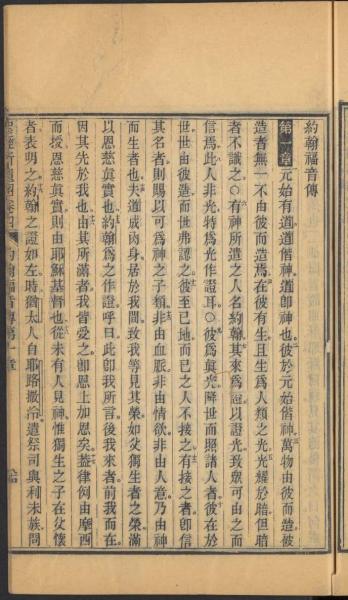 約翰福音傳
第一章元始有道道偕神道卽神也彼於元始偕神萬物由彼而造被
造者無一不由彼而造焉在彼有生且生爲人類之光光耀於暗但暗
者不識之〇有神所遣之人名約翰其來爲證以證光致衆可由之而
信焉此人非光特爲光作證耳〇彼爲眞光降世而照諸人者彼在於
世世由彼造而世弗認之彼至己地而己之人不接之有接之者卽信
其名者則賜以可爲神之子類非由血脈非由情欲非由人意乃由神
而生者也夫道成肉身居於我間致我等見其榮如父獨生者之榮滿
以恩慈眞實也約翰爲之作證呼曰此卽我所言後我來者前我而在
因其先於我也由其所滿者我皆受之卽恩上加恩矣葢律例由摩西
而授恩慈眞實則由耶穌基督也從未有人見神惟獨生之子在父懷
者表明之約翰之證如左時猶太人自耶路撒冷遣祭司與利未族問
約翰福音傳第一章